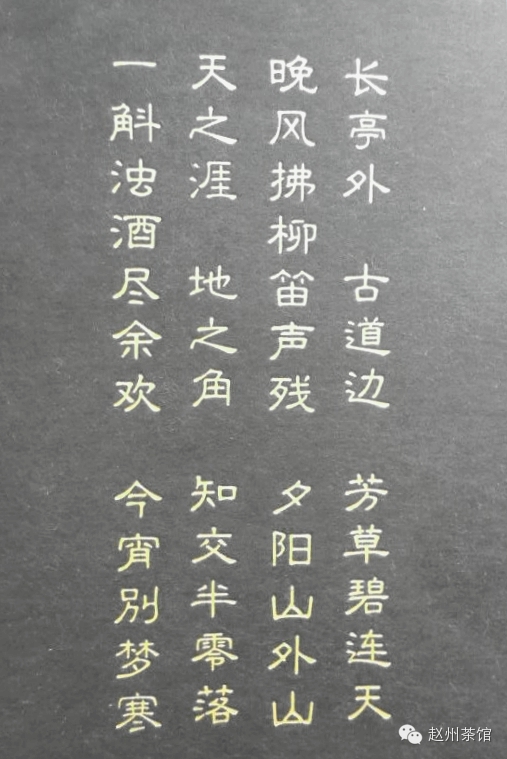 长亭外 古道边 芳草碧连天
晚风拂柳笛声残 夕阳山外山
天之涯 地之角 知交半零落
一斛浊酒尽余欢 今宵别梦寒
赵州茶馆